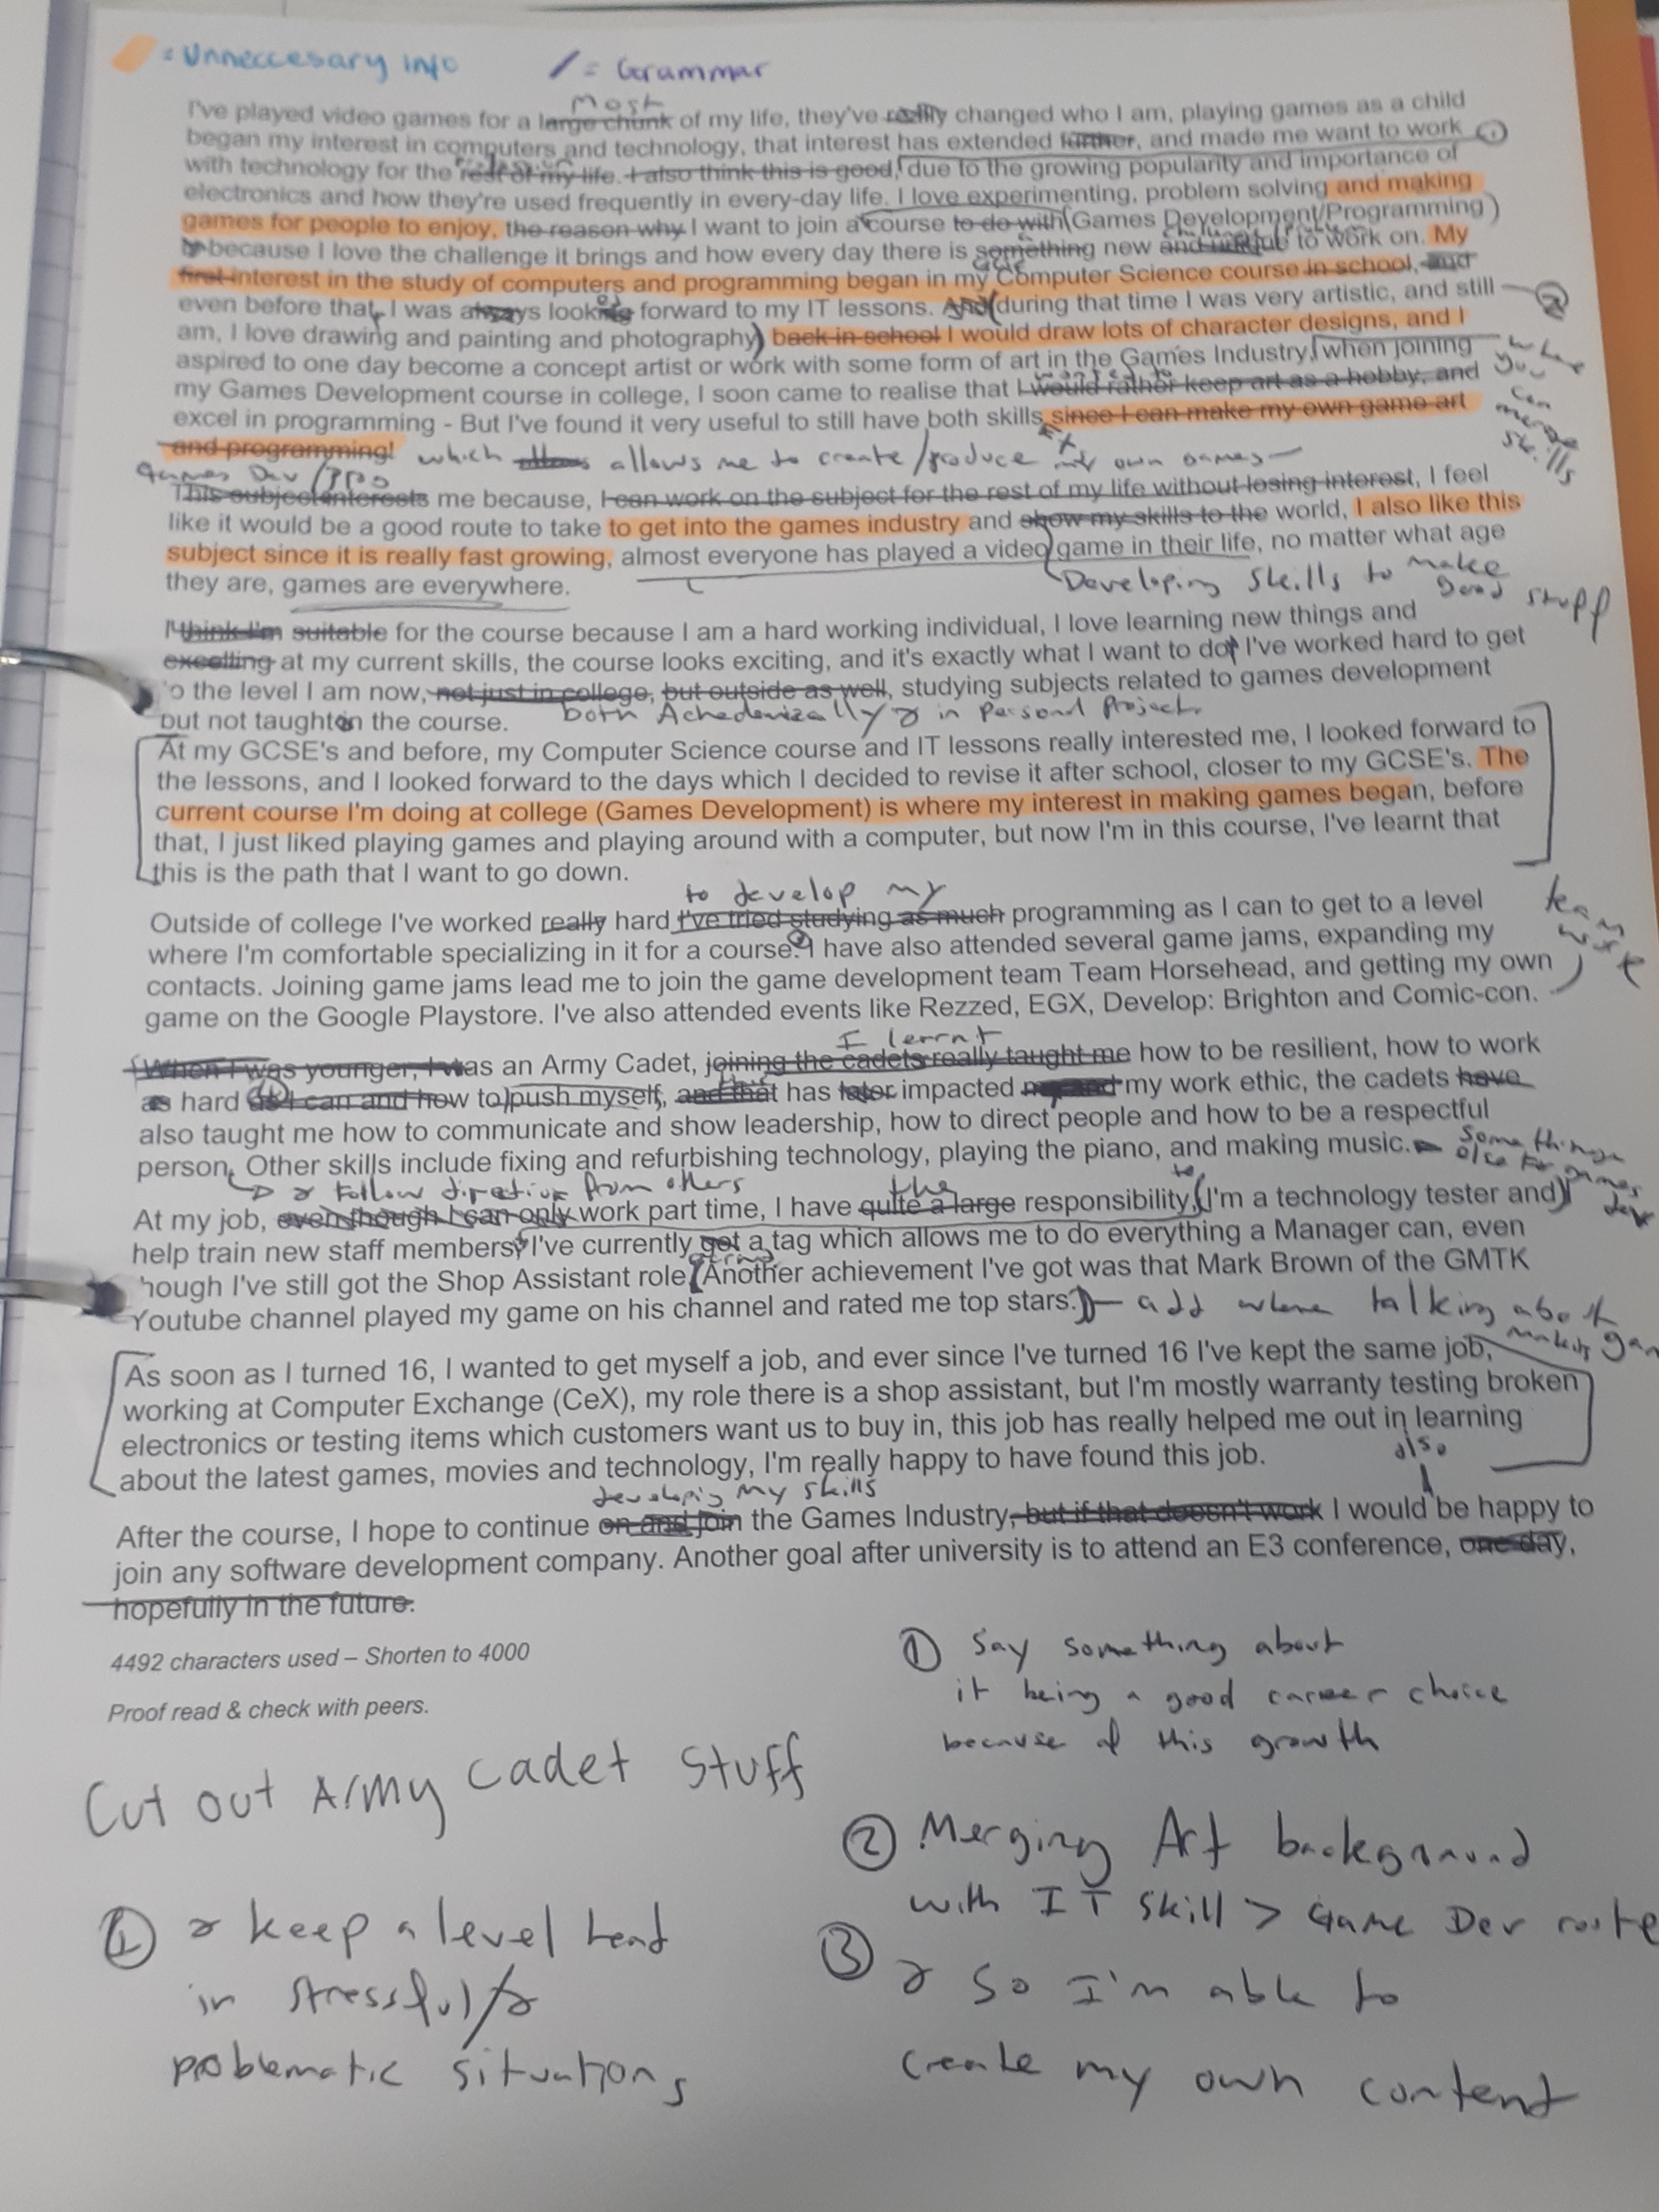 = Unneccesary info / = Grammar
most
I've played video games for a large chunk of my life, they've really changed who I am, playing games as a child
began my interest in computers and technology, that interest has extended further, and made me want to work ①
with technology for the rest of my life. I also think this is good, due to the growing popularity and importance of
electronics and how they're used frequently in every-day life. I love experimenting, problem solving and making
games for people to enjoy, the reason why I want to join a course to do with (Games Development/Programming)
because I love the challenge it brings and how every day there is something new and unique to work on. My
first interest in the study of computers and programming began in my Computer Science course in school, and
even before that, I was always looking forward to my IT lessons. And (during that time I was very artistic, and still ②
am, I love drawing and painting and photography) back in school I would draw lots of character designs, and I
aspired to one day become a concept artist or work with some form of art in the Games Industry, when joining
where you can merge skills
wanted to
my Games Development course in college, I soon came to realise that I would rather keep art as a hobby, and
excel in programming - But I've found it very useful to still have both skills, since I can make my own game art
and programming! which allows me to create/produce my own games
Games Dev/Pro
This subject interests me because, I can work on the subject for the rest of my life without losing interest, I feel
like it would be a good route to take to get into the games industry and show my skills to the world, I also like this
subject since it is really fast growing, almost everyone has played a video game in their life, no matter what age
they are, games are everywhere.
Developing skills to make good stuff
I think I'm suitable for the course because I am a hard working individual, I love learning new things and
excelling at my current skills, the course looks exciting, and it's exactly what I want to do, I've worked hard to get
to the level I am now, not just in college, but outside as well, studying subjects related to games development
but not taught on the course. both Achedemically & in personal projects
At my GCSE's and before, my Computer Science course and IT lessons really interested me, I looked forward to
the lessons, and I looked forward to the days which I decided to revise it after school, closer to my GCSE's. The
current course I'm doing at college (Games Development) is where my interest in making games began, before
that, I just liked playing games and playing around with a computer, but now I'm in this course, I've learnt that
this is the path that I want to go down.
to develop my
Outside of college I've worked really hard I've tried studying as much programming as I can to get to a level
where I'm comfortable specializing in it for a course. I have also attended several game jams, expanding my
contacts. Joining game jams lead me to join the game development team Team Horsehead, and getting my own
game on the Google Playstore. I've also attended events like Rezzed, EGX, Develop: Brighton and Comic-con.
team work
I lernt
When I was younger, I was an Army Cadet, joining the cadets really taught me how to be resilient, how to work
as hard as I can and how to push myself, and that has later impacted my work ethic, the cadets have
also taught me how to communicate and show leadership, how to direct people and how to be a respectful
person. Other skills include fixing and refurbishing technology, playing the piano, and making music.
Something else for games dev
& follow direction from others
the
to
At my job, even though I can only work part time, I have quite a large responsibility, (I'm a technology tester and)
help train new staff members, I've currently got a tag which allows me to do everything a Manager can, even
though I've still got the Shop Assistant role. (Another achievement I've got was that Mark Brown of the GMTK
Youtube channel played my game on his channel and rated me top stars.) add when talking about making gam
As soon as I turned 16, I wanted to get myself a job, and ever since I've turned 16 I've kept the same job,
working at Computer Exchange (CeX), my role there is a shop assistant, but I'm mostly warranty testing broken
electronics or testing items which customers want us to buy in, this job has really helped me out in learning
about the latest games, movies and technology, I'm really happy to have found this job.
developing my skills
also
After the course, I hope to continue on and join the Games Industry, but if that doesn't work I would be happy to
join any software development company. Another goal after university is to attend an E3 conference, one day,
hopefully in the future.
4492 characters used – Shorten to 4000
Proof read & check with peers.
① Say something about
it being a good career choice
because of this growth
Cut out Army Cadet Stuff
② Merging Art background
with IT skill > Game Dev route
① & keep a level head
in stressful/&
problematic situations
③ & so I'm able to
create my own content